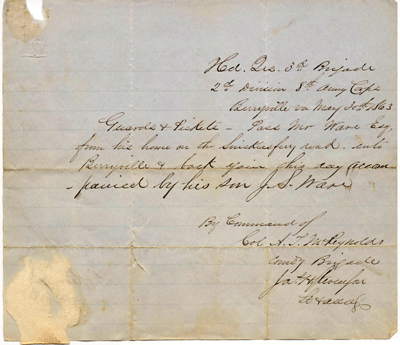 Hd. Qrs. 3d Brigade
2d Division 8th Army Corps
Berryville Va May 30th 1863
Guards & Pickets - Pass Mr Ware Esq.
from his home on the road into
Berryville & back again this day accom
-panied by his son J. S. Ware
By Command of
Col. A. T. McReynolds
Comdg Brigade
Jas. H. Stevenson